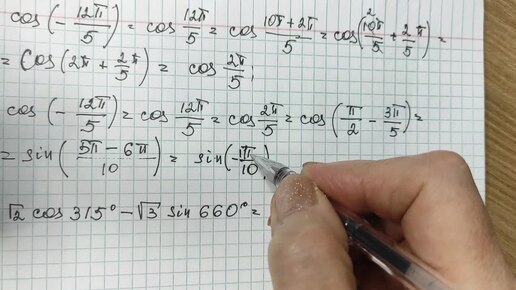 cos(-12π/5) = cos 12π/5 = cos (10π+2π)/5 = cos(10π/5 + 2/5 π) =
= cos(2π + 2/5 π) = cos 2π/5;
cos(-12π/5) = cos 12π/5 = cos 2π/5 = cos(π/2 - 3π/5) =
= sin((5π-6π)/10) = sin(-1π/10)
√2 cos 315° - √3 sin 660° =